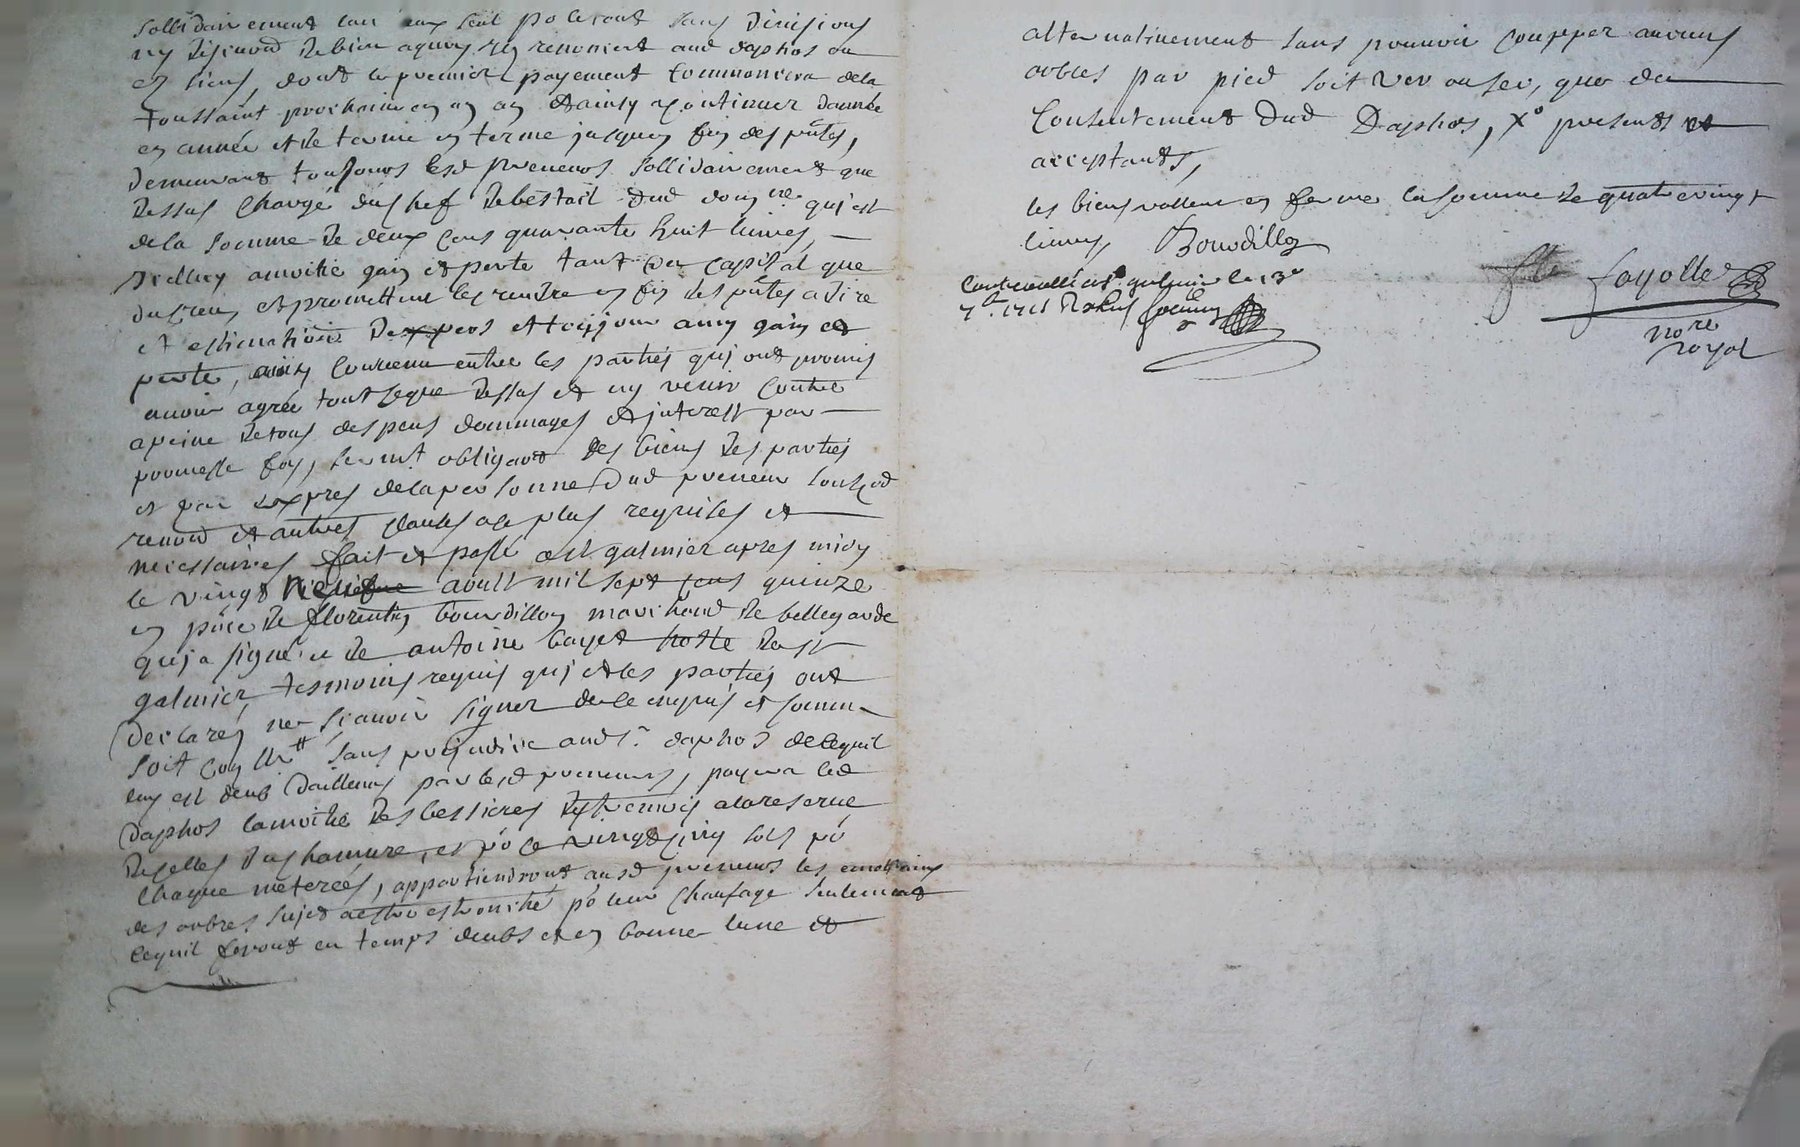 sollidairement lun deux seul po le tout sans divisions
ny discution de biens aquoy ils renoncent aud daphos ou
es siens, dont le premier payement commancera dela
toussaint prochaine en un an et ainsy a continuer dannée
en année et de terme en terme jusques fin des pntes,
demeurant toujours lesd preneurs sollidairement que
dessus chargé du chef de bestail dud domne qui est
de la somme de deux cens quarante huit livres,
dicelluy amoitié gain et perte tant du capital que
du creu et promettent les rendre en fin des pntes a dire
et estimation dexpers et toujjour amy gain et
perte, ainsy convenu entre les parties quj ont promis
avoir agréé tout ceque dessus et ny venir contre
apeine de tous despens dommages et jnterest par
promesse foy, sermt obligaon des biens des parties
et par expres de la personne dud preneur
renon et autres clauses a ce plus requises et
necessaires fait et passé a st galmier apres midy
le vingt aoust mil sept cens quinze
en pnce de florentin bourdillon marchand de bellegarde
quj a signé et de antoine bayet hoste de st
galmier, tesmoins requis quj et les parties ont
declarés ne scavoir signer de ce enquis et somm
soit con llé sans prejudice aud sr daphos de cequil
luy est deub dailleurs par lesd preneurs, payera led
daphos la moitié des
chaque meterées, appartiendront ausd preneurs les
des arbres sujet a estre po leur chaufage seulement
cequil feront en temps deubs et en bonne lune et
alternativement sans pouvoir coupper aucuns
arbres par pied soit ver ou sec, que du
consentement dud Daphos, presents et
acceptants,
les biens vallent en ferme la somme de quatre vingt
livres, Bourdillon
controuollé a st galmier le 13e
7bre 1715
fayolle
nore
royal